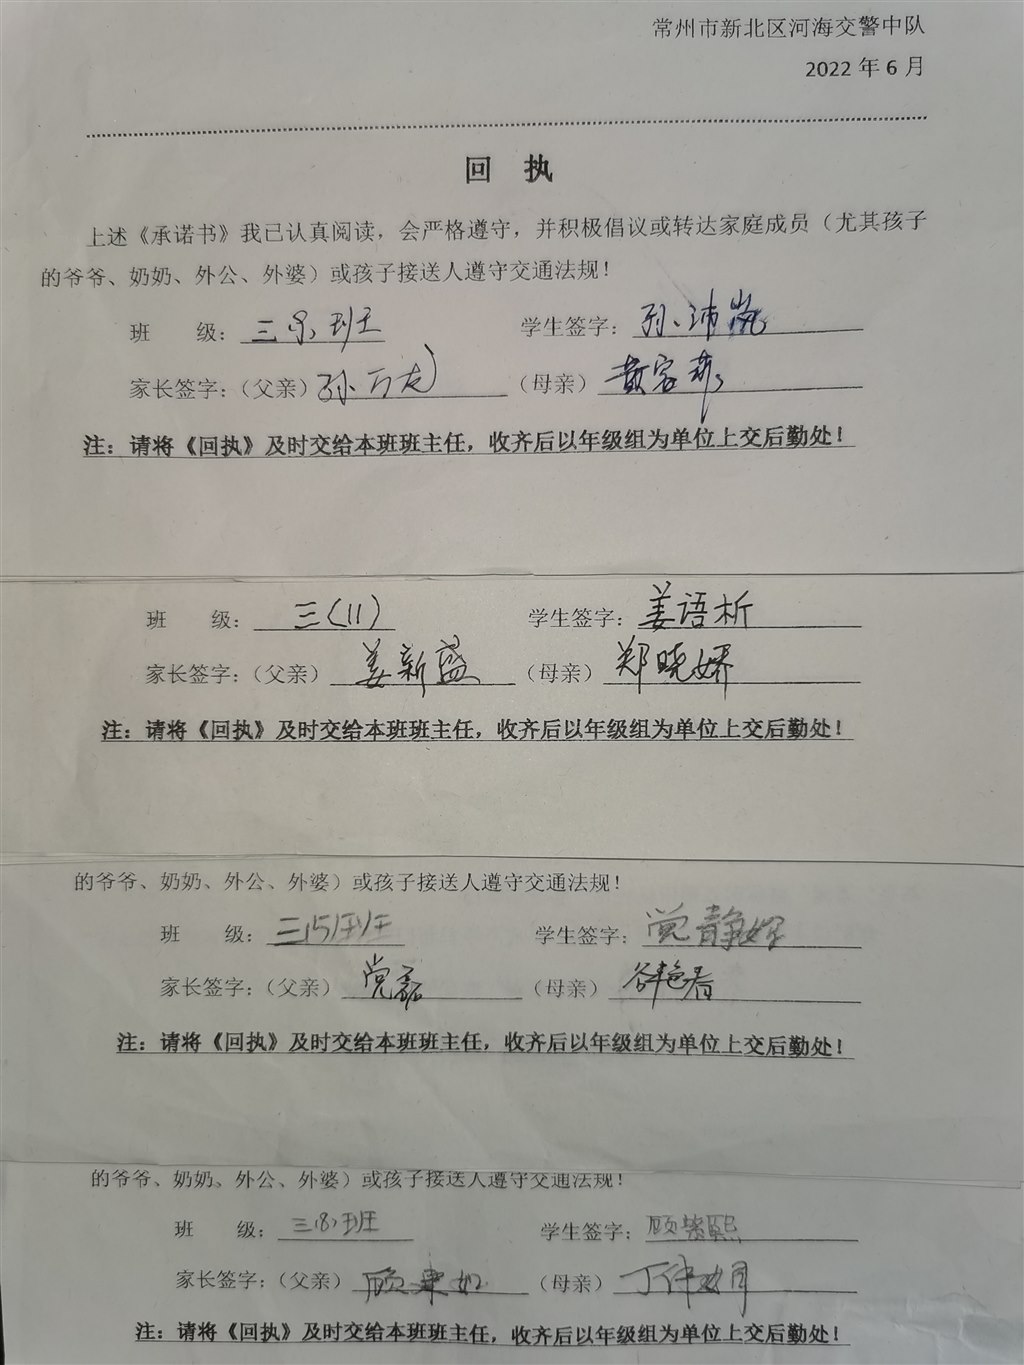 常州市新北区河海交警中队
2022 年 6 月
回 执
上述《承诺书》我已认真阅读，会严格遵守，并积极倡议或转达家庭成员（尤其孩子
的爷爷、奶奶、外公、外婆）或孩子接送人遵守交通法规！
班 级： 班 学生签字：孙沛岚
家长签字：（父亲）孙万友 （母亲）黄容
注：请将《回执》及时交给本班班主任，收齐后以年级组为单位上交后勤处！
班 级：三（11） 学生签字：姜语析
家长签字：（父亲）姜新盛 （母亲）郑晓娇
注：请将《回执》及时交给本班班主任，收齐后以年级组为单位上交后勤处！
的爷爷、奶奶、外公、外婆）或孩子接送人遵守交通法规！
班 级： 学生签字：党静
家长签字：（父亲）党磊 （母亲）艳春
注：请将《回执》及时交给本班班主任，收齐后以年级组为单位上交后勤处！
的爷爷、奶奶、外公、外婆）或孩子接送人遵守交通法规！
班 级：三（8）班 学生签字：顾紫熙
家长签字：（父亲）顾建 （母亲）丁伟娟
注：请将《回执》及时交给本班班主任，收齐后以年级组为单位上交后勤处！